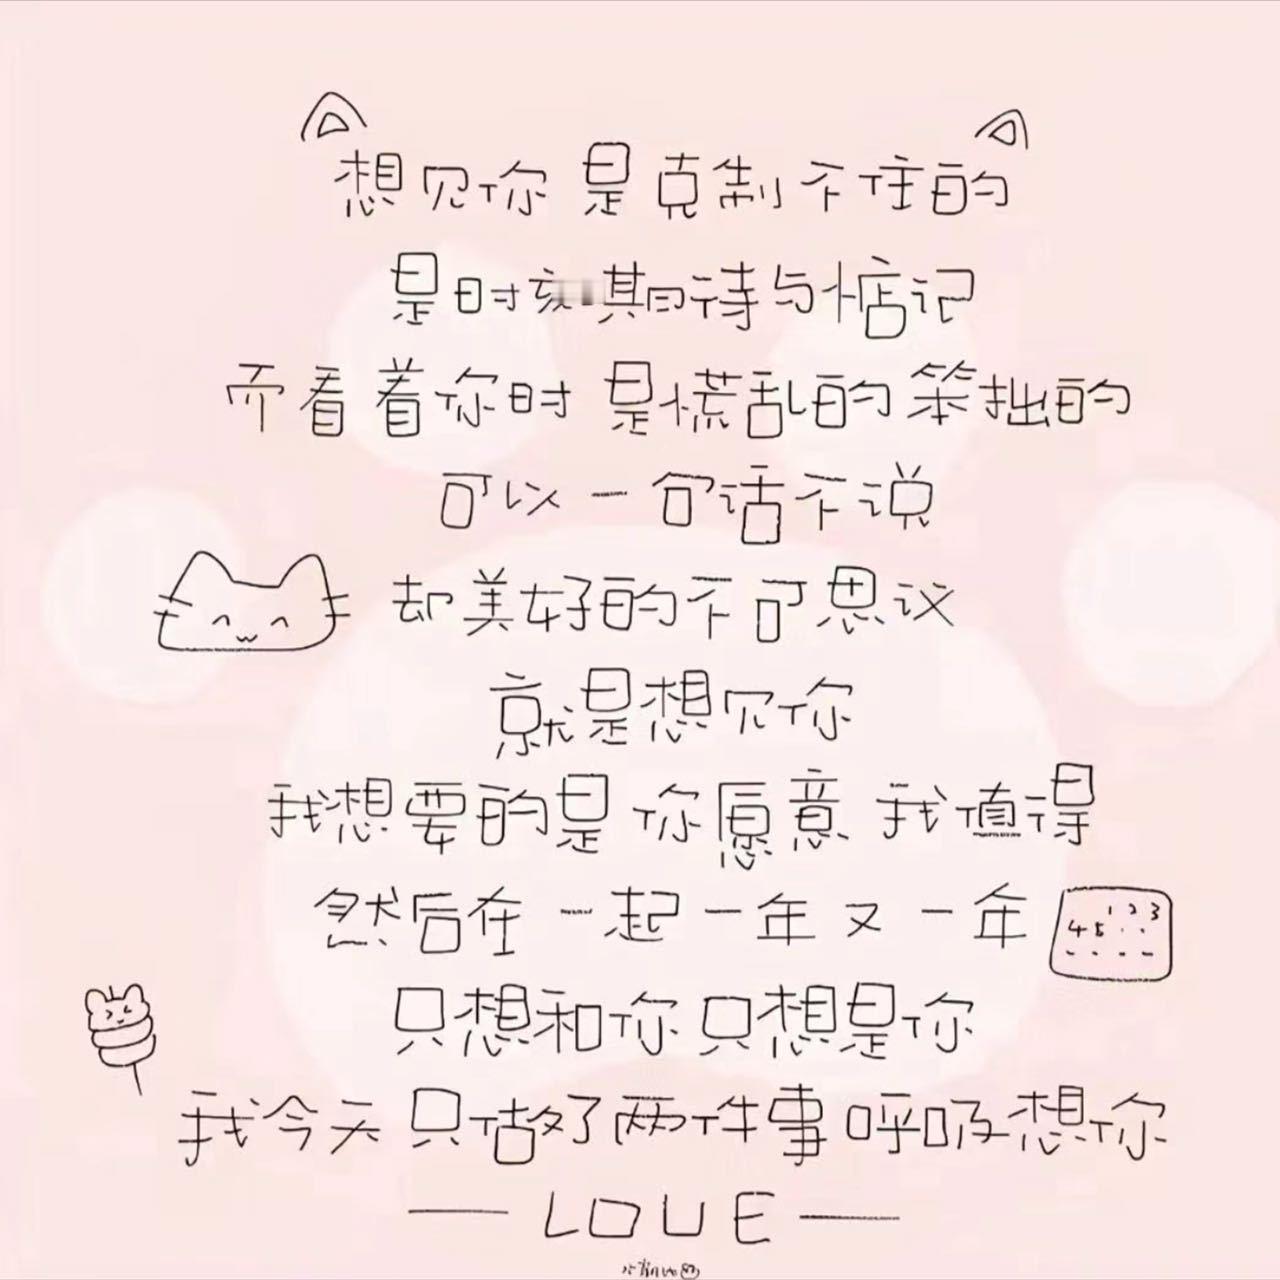 想见你 是克制不住的
是时刻期待与惦记
而看着你时 是慌乱的笨拙的
可以一句话不说
却美好的不可思议
就是想见你
我想要的是 你愿意 我值得
然后在一起一年又一年
1 2 3
4 5
只想和你 只想是你
我今天只做了两件事 呼吸 想你
LOVE